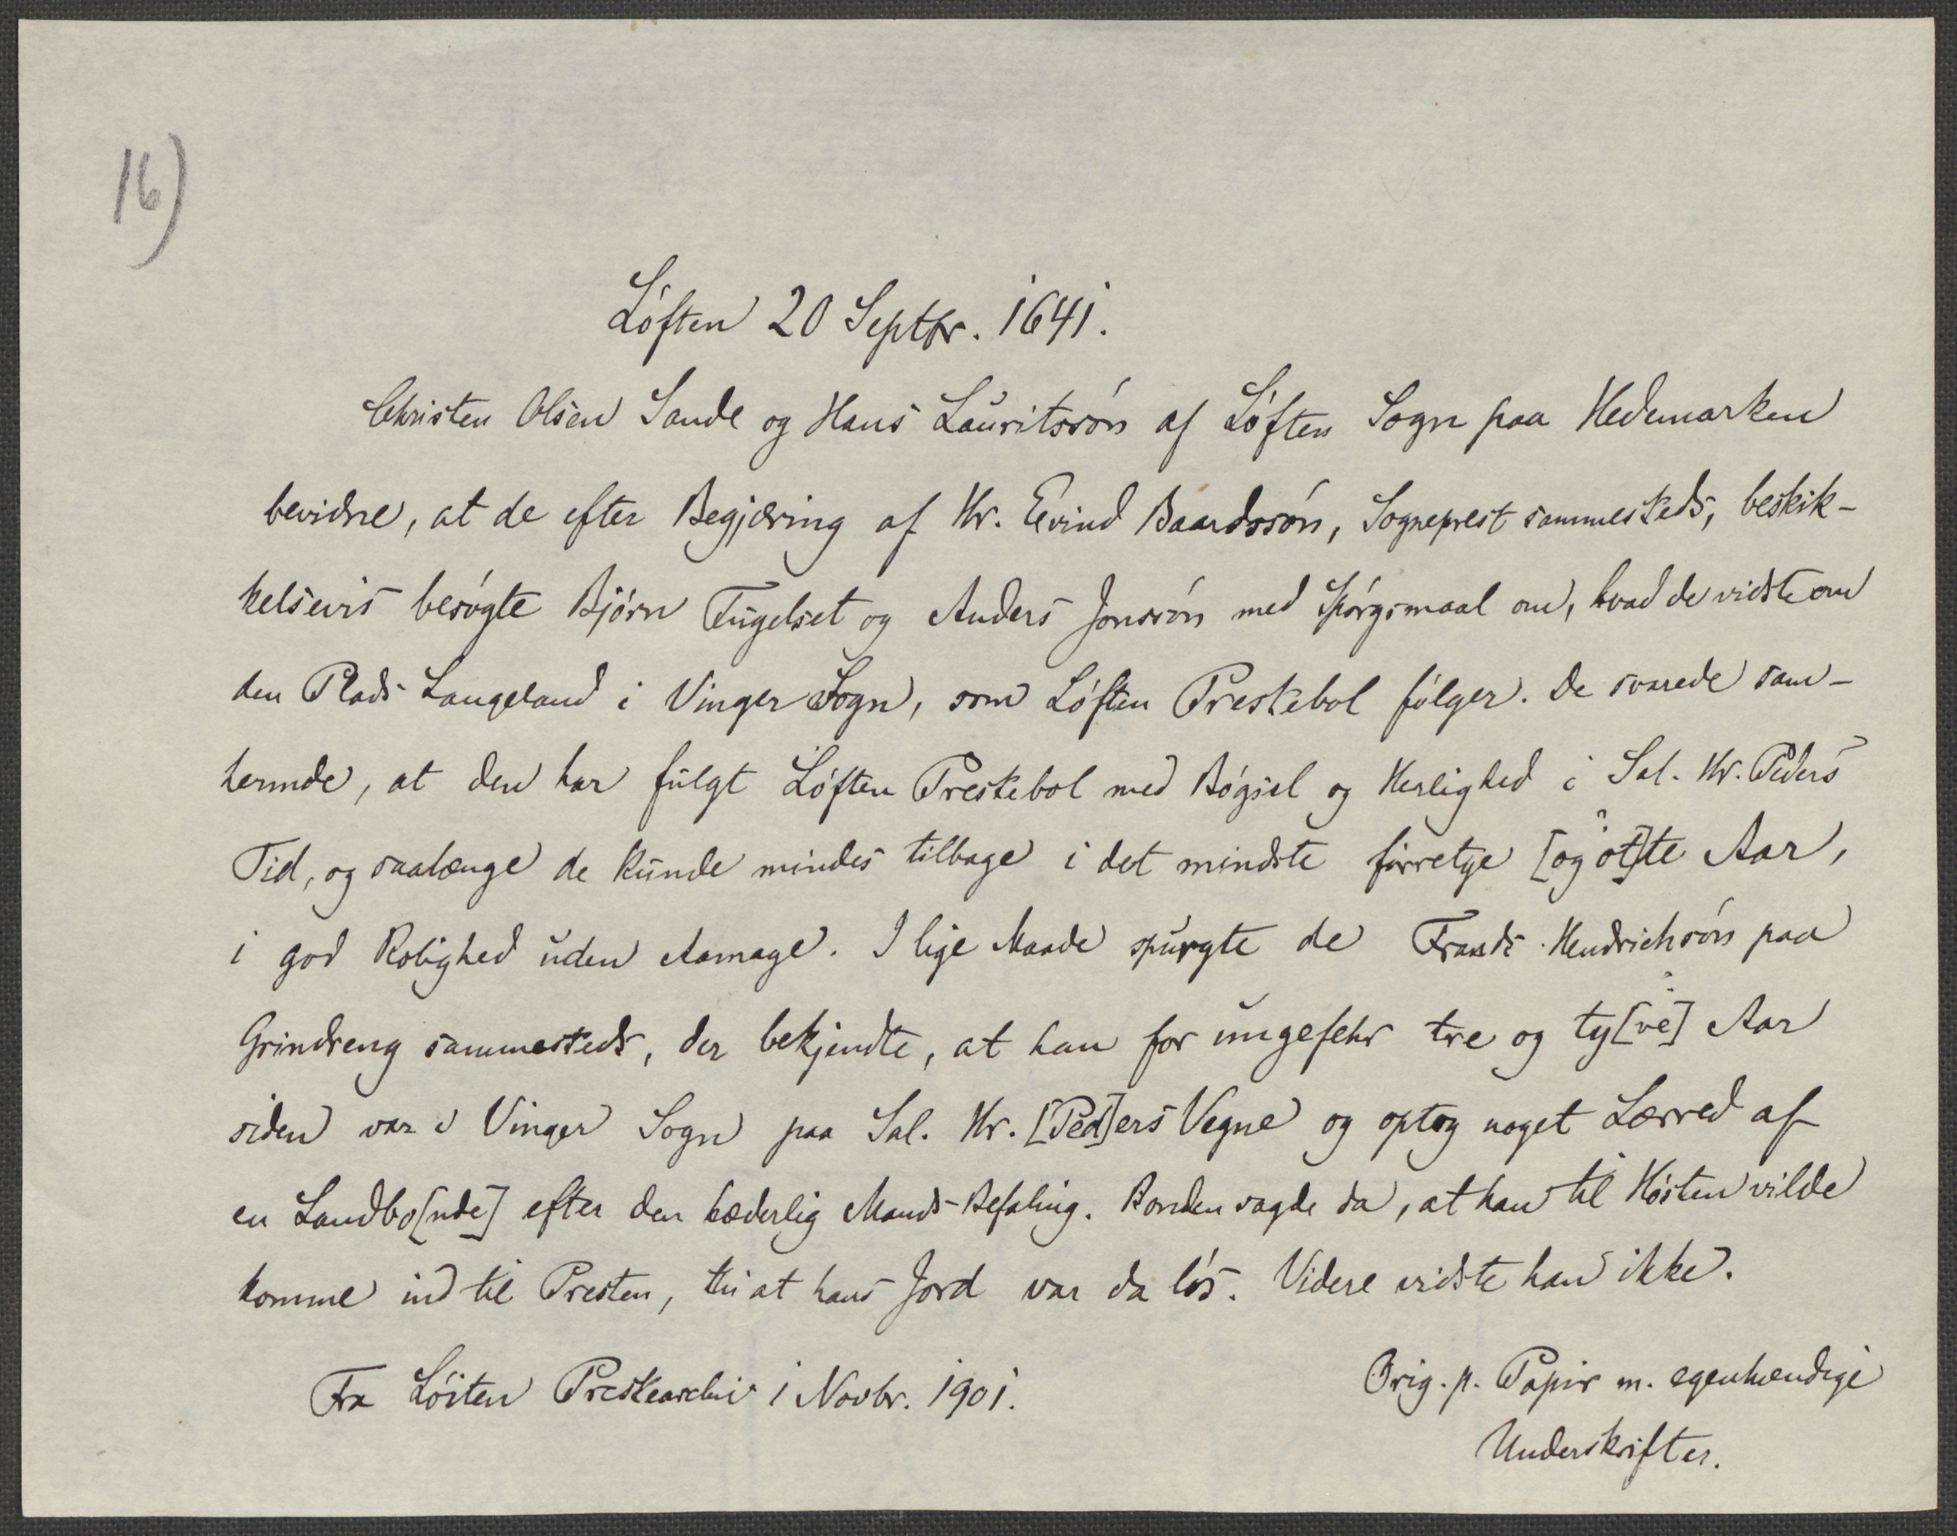 16)
Løften 20 Septbr. 1641.
Christen Olsen Sande og Hans Lauritssøn af Løften Sogn paa Hedemarken
bevidne, at de efter Begjæring af Hr. Eivind Baardssøn, Sogneprest sammesteds, beskik-
kelsevis besøgte Bjørn Fugelset og Anders Jonssøn med Spørgsmaal om, hvad de vidste om
den Plads Langeland i Vinger Sogn, som Løften Prestebol følger. De svarede sam-
hermde, at den har fulgt Løften Prestebol med Bøgsel og Herlighed i Sal. Hr. Peders
Tid, og saalænge de kunde mindes tilbage i det mindste førretye [og ot]te Aar,
i god Rolighed uden Aamage. I lige Maade spurgte de Frands Hendrichsøn paa
Grindreng sammesteds, der bekjendte, at han for ungefehr tre og ty[ve] Aar
siden var i Vinger Sogn paa Sal. Hr. [Ped]ers Vegne og optog noget Lærred af
en Landbo[nde] efter den hæderlig Mands Befaling. Bonden sagde da, at han til Høsten vilde
komme ind til Presten, thi at hans Jord var da løs. Videre vidste han ikke.
Fra Løiten Prestearchiv i Novbr. 1901.
Orig. p. Papir m. egenhændige
Underskrifter.